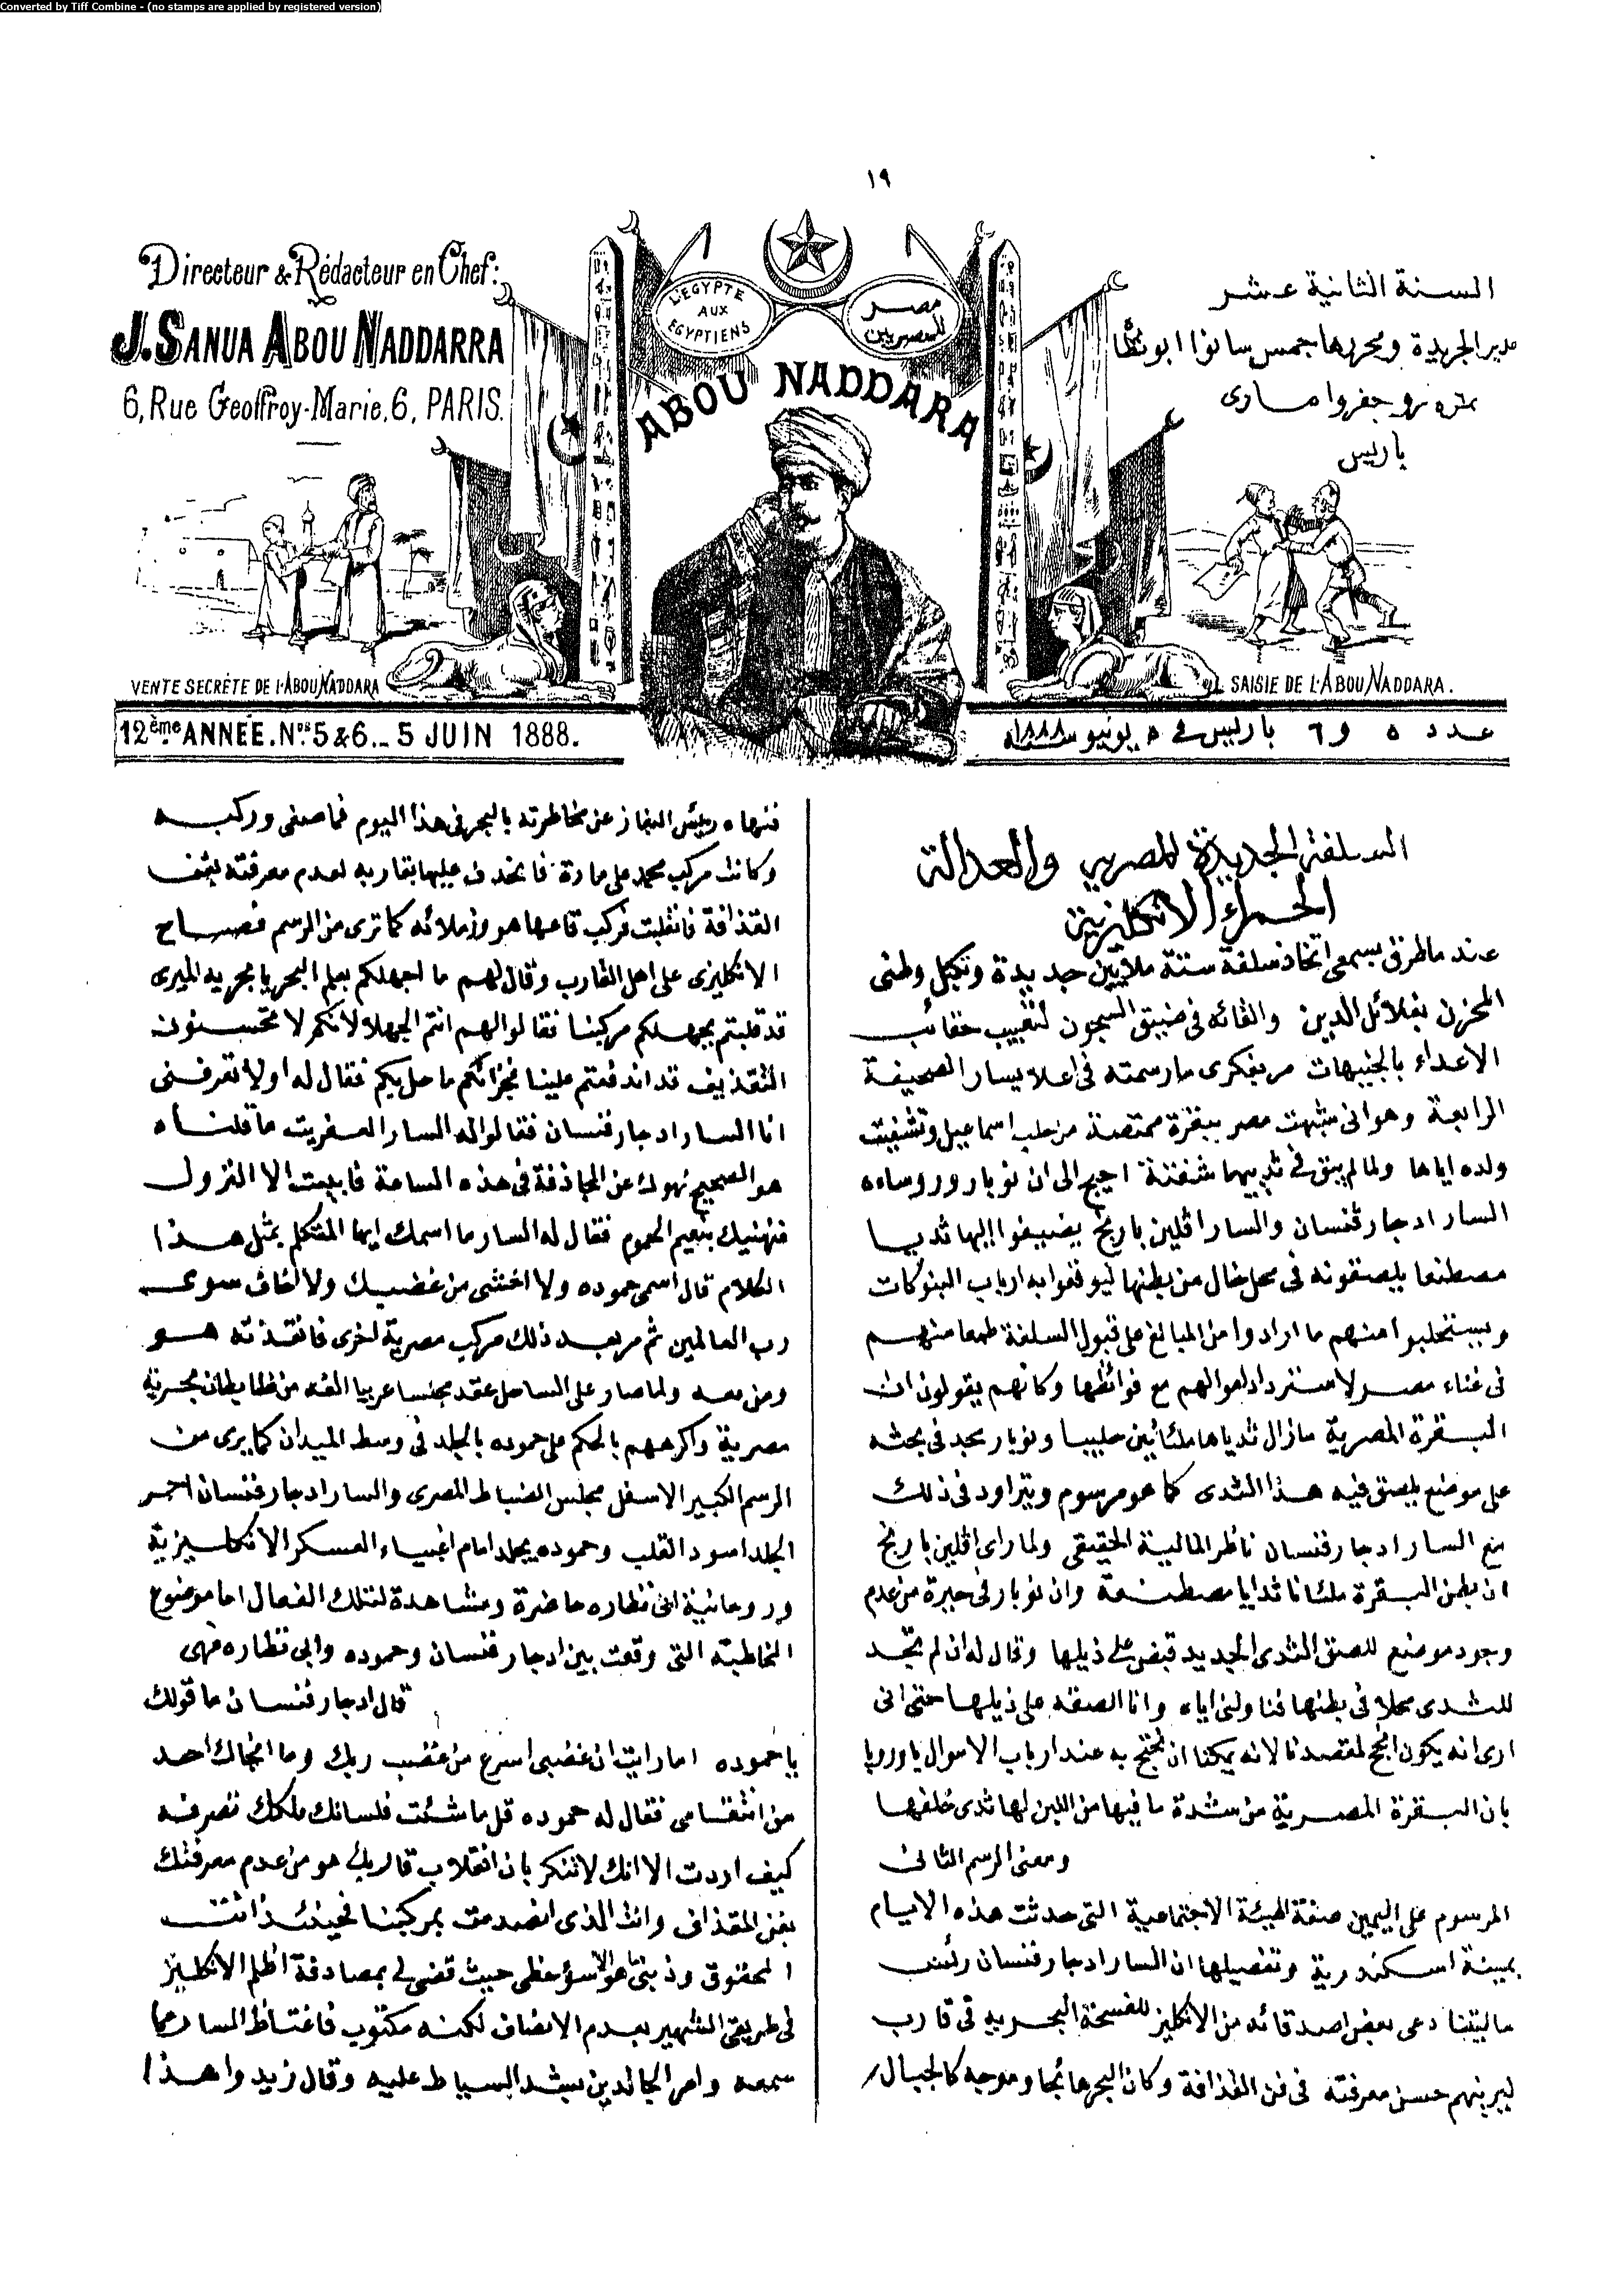 Converted by Tiff Combine - (no stamps are applied by registered version)
١٩
Directeur & Rédacteur en Chef:
J. SANUA ABOU NADDARRA
6, Rue Geoffroy-Marie, 6, PARIS.
L'EGYPTE
AUX
EGYPTIENS
مصر
للمصريين
ABOU NADDARA
السنة الثانية عشر
مدير الجريدة ومحررها جمس سانوا ابو نظا
نمره ٦ رو جفروا مارى
باريس
VENTE SECRÈTE DE L'ABOU NADDARA
SAISIE DE L'ABOU NADDARA.
12ème ANNÉE. Nos 5 & 6. _ 5 JUIN 1888.
عدد ٥ و ٦ باريس فى ٥ يونيو سنة ١٨٨٨
السلفة الجديدة المصريه والعدالة
الحمراء الانكليزية
عند ما طرق بسمعى اتخاذ سلفة ستة ملايين جديدة وتكبل وطنى
المحزن بغلائل الدين والقائه فى ضيق السجون لتغييب حقائب
الاعداء بالجنيهات مر بفكرى ما رسمته فى اعلا يسار الصحيفة
الرابعة وهو انى شبهت مصر ببقرة ممتصة من حلب اسماعيل وتشفيت
ولده اياها ولما لم يبق فى ثدييها شفتة احيج الى ان نوبار وروساءه
السار ادجار ڤنسان والسار اڤلين بارنج يضيفوا اليها ثديا
مصطنعا يلصقونه فى محل خال من بطنها ليوقفوا به ارباب البنوكات
ويستحلبوا منهم ما ارادوا من المبالغ على قبول السلفة طمعا منهم
فى غناء مصر لاسترداد اموالهم مع فوائظها وكانهم يقولون ان
البقرة المصرية مازال ثدياها ملئائين حليبا ونوبار يجد فى بحثه
على موضع يلصق فيه هذا الثدى كما هو مرسوم ويتراود فى ذلك
مع السار ادجار فنسان ناظر المالية الحقيقى ولما راى اڤلين بارنج
ان بطن البقرة ملئانا ثدايا مصطنعة وان نوبار فى حيرة من عدم
وجود موضع للصق الثدى الجديد قبض على ذيلها وقال له ان لم تجد
للثدى محلا فى بطنها فناولنى اياه وانا الصقه على ذيلها حتى انى
ارى انه يكون انجح لمقصدنا لانه يمكنا ان نحتج به عند ارباب الاموال باوروبا
بان البقرة المصرية من شدة ما فيها من اللبن لها ثدى خلفها
ومعنى الرسم الثانى
المرسوم على اليمين صفة الهيئة الاجتماعية التى حدثت هذه الايام
بمينة اسكندرية وتفصيلها ان السار ادجار فنسان رئيس
ماليتنا دعى بعض اصدقائه من الانكليز للفسحة البحرية فى قارب
ليريهم حسن معرفته فى فن القذافة وكان البحر هائجا وموجه كالجبال
فنهاه رييس النجاز عن مخاطرته بالبحر فى هذا اليوم فما صغى وركب
وكانت مركب محمد على مارة فانحدف عليها بقاربه لعدم معرفته بفن
القذافة فانقلبت فركب قاعها هو وزملائه كما ترى من الرسم فصاح
الانكليزى على اهل القارب وقال لهم ما اجهلكم بعلم البحر يا بحرية الميرى
قد قلبتم بجهلكم مركبنا فقالوا لهم انتم الجهلا لانكم لا تحسنون
التقذيف قد اندفعتم علينا فجزائكم ما حل بكم فقال له اولا تعرفنى
انا السار ادجار فنسان فقالوا له السار العفريت ما قلناه
هو الصحيح نهوك عن المجاذفة فى هذه الساعة فابيت الا النزول
فنهنيك بنعيم الحموم فقال له السار ما اسمك ايها المتكلم بمثل هذا
الكلام قال اسمى حموده ولا اخشى من غضبك ولا اخاف سوى
رب العالمين ثم مر بعد ذلك مركب مصرية اخرى فانقذته هو
ومن معه ولما صار على الساحل عقد مجلسا عربيا الفه من ظابطان بحرية
مصرية واكرههم بالحكم على حموده بالجلد فى وسط الميدان كما يرى من
الرسم الكبير الاسفل مجلس الضباط المصرى والسار ادجار فنسان احمر
الجلد اسود القلب وحموده يجلد امام اغبياء العسكر الانكليزية
وروحانية ابى نظاره حاضرة ومشاهدة لتلك الفعال اما موضوع
المخاطبة التى وقعت بين ادجار فنسان وحموده وابى نظاره فهى
قال ادجار فنسان ما قولك
يا حموده اما رايت ان غضبى اسرع من غضب ربك وما انجاك احد
من انتقامى فقال له حموده قل ما شئت فلسانك ملكك تصرفه
كيف اردت الا انك لا تنكر بان انقلاب قاربك هو من عدم معرفتك
بفن المقذاف وانت الذى انصدمت بمركبنا فحينئذ انت
المحقوق وذنبى هو الاسؤ حظى حيث قضى لى بمصادفة اظلم الانكليز
فى طريقى الشهير بعدم الانصاف لكنه مكتوب فاغتاظ السار مما
سمعه وامر الجالدين بشد السياط عليه وقال زيدوا هذا